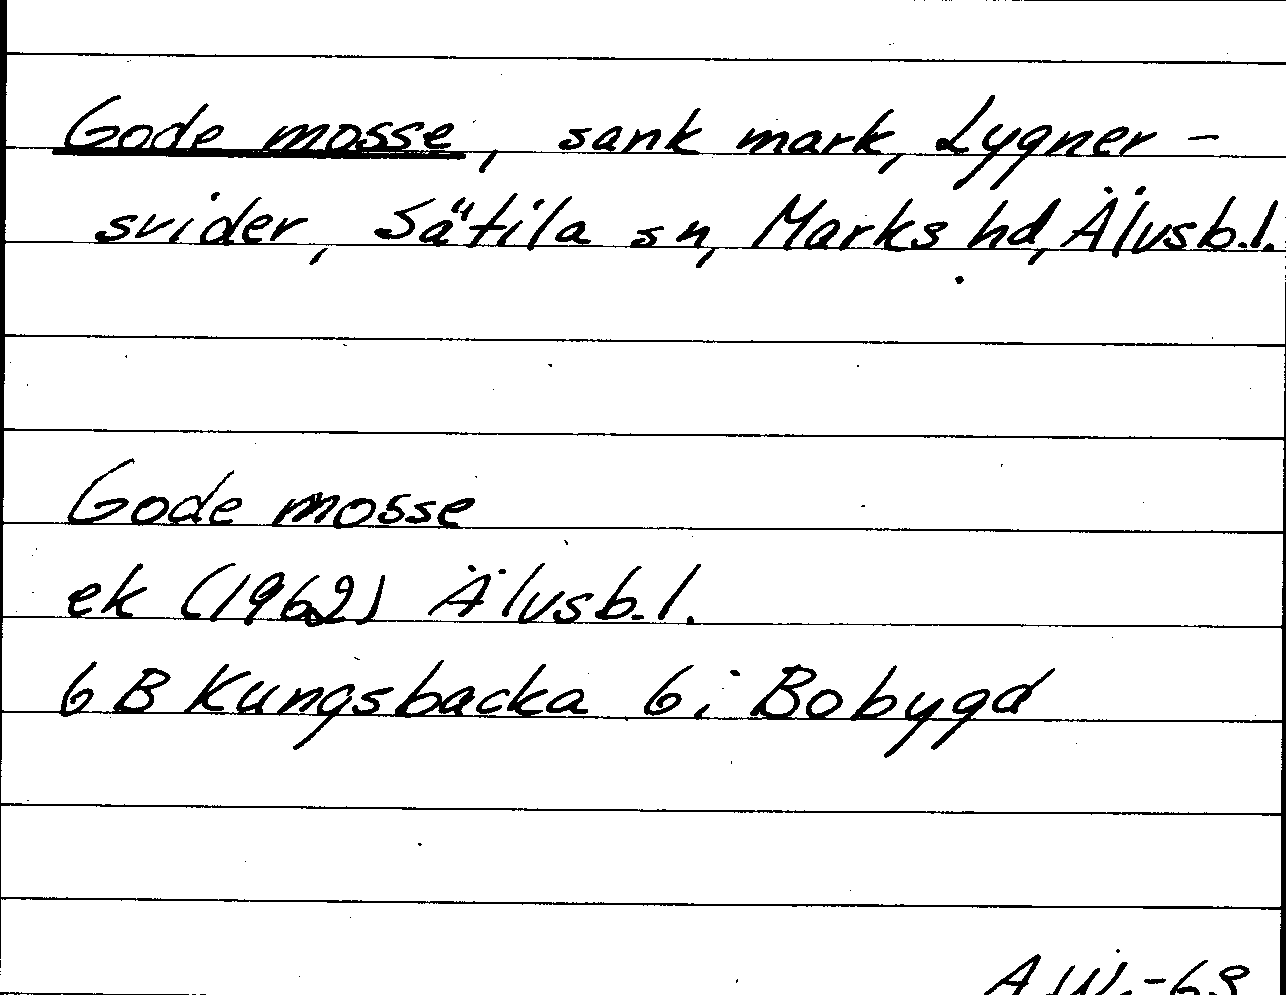 Gode mosse, sank mark, Lygner-
svider, Sätila sn, Marks hd, Älvsb.l.
Gode mosse
ek (1962) Älvsb.l.
6 B Kungsbacka 6 i Bobygd